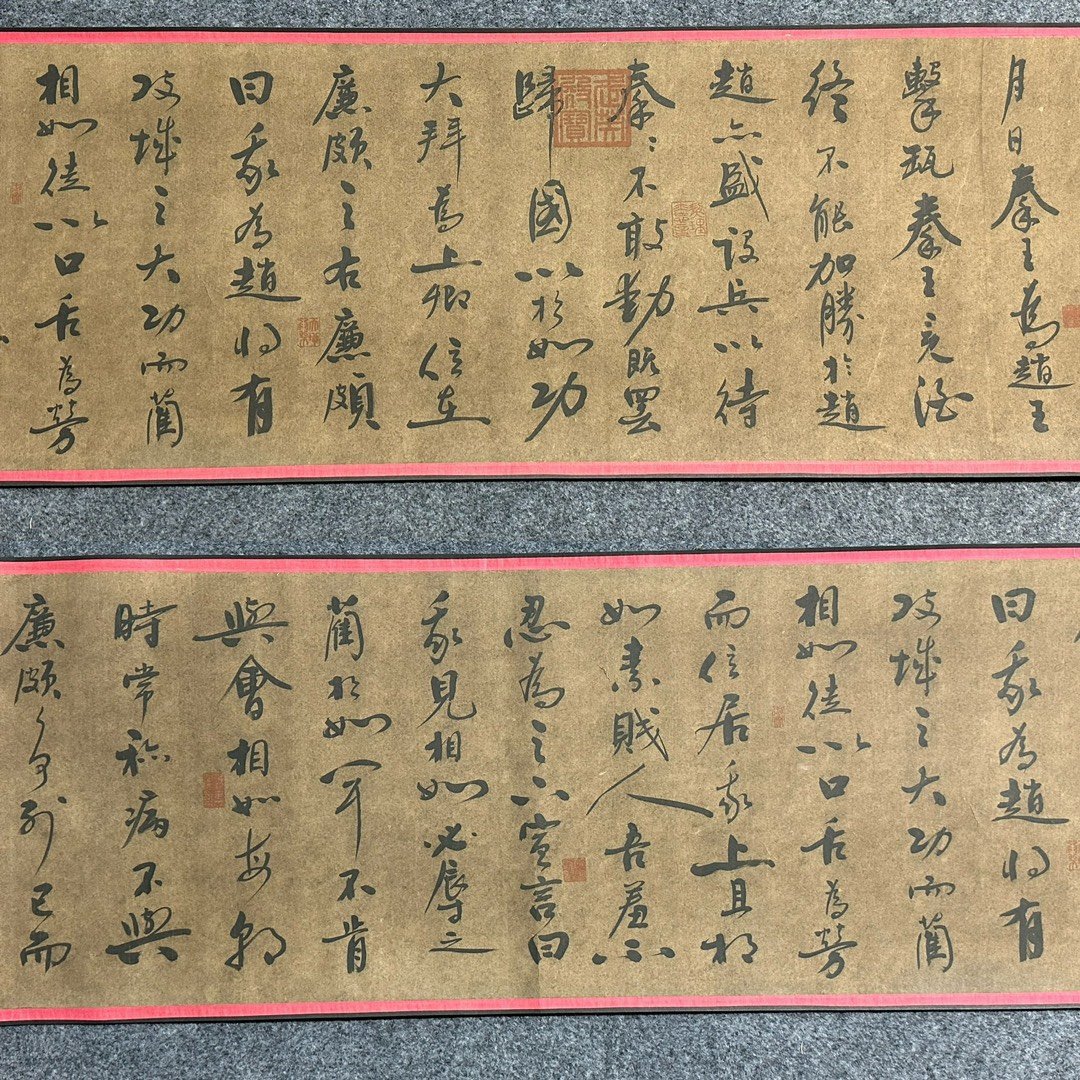 月日秦王為趙王
擊缻秦王竟酒
終不能加勝於趙
趙亦盛設兵以待
秦〻不敢動既罷
歸國以相如功
大拜為上卿位在
廉頗之右廉頗
曰我為趙將有
攻城之大功而藺
相如徒以口舌為勞
曰我為趙將有
攻城之大功而藺
相如徒以口舌為勞
而位居我上且相
如素賤人吾羞不
忍為之下宣言曰
我見相如必辱之
藺相如聞不肯
與會相如每朝
時常稱病不與
廉頗爭列已而